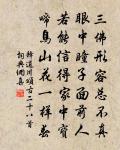 三佛形容總不真
眼中瞳子面前人
若能信得家中寶
啼鳥山花一樣春
釋道川頌古二十八首
詞典網